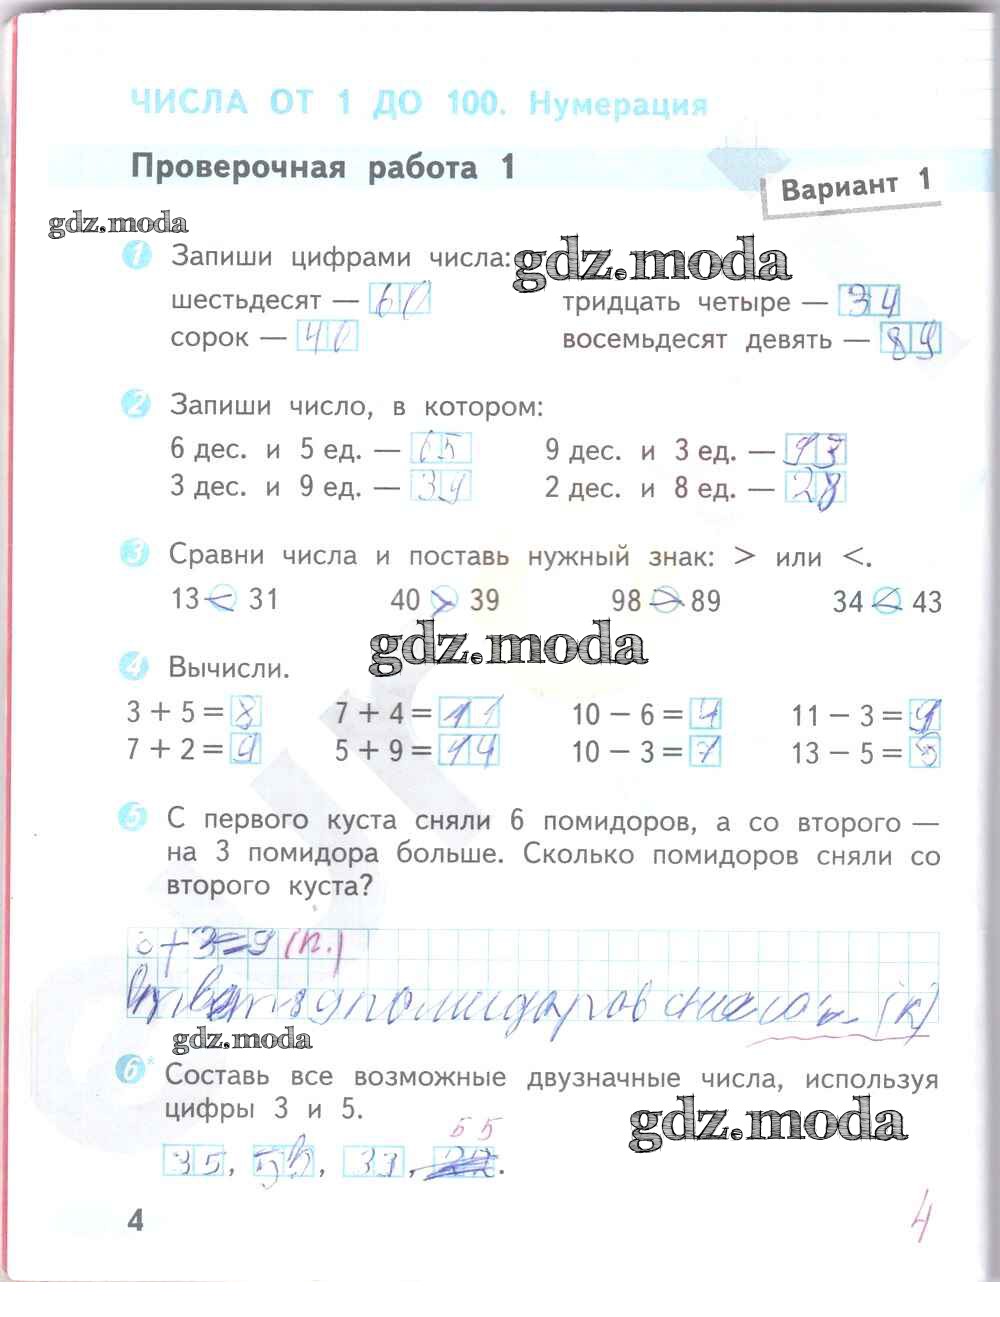 ЧИСЛА ОТ 1 ДО 100. Нумерация
Проверочная работа 1
Вариант 1
gdz.moda
1 Запиши цифрами числа:
gdz.moda
шестьдесят — 60 тридцать четыре — 34
сорок — 40 восемьдесят девять — 89
2 Запиши число, в котором:
6 дес. и 5 ед. — 65 9 дес. и 3 ед. — 93
3 дес. и 9 ед. — 39 2 дес. и 8 ед. — 28
3 Сравни числа и поставь нужный знак: > или <.
13 < 31 40 > 39 98 > 89 34 < 43
gdz.moda
4 Вычисли.
3 + 5 = 8 7 + 4 = 11 10 − 6 = 4 11 − 3 =
7 + 2 = 9 5 + 9 = 14 10 − 3 = 7 13 − 5 =
5 С первого куста сняли 6 помидоров, а со второго —
на 3 помидора больше. Сколько помидоров сняли со
второго куста?
6+3=9 (п.)
9 помидоров (к)
gdz.moda
6* Составь все возможные двузначные числа, используя
цифры 3 и 5.
gdz.moda
55
35, 53, 33, .
4
4